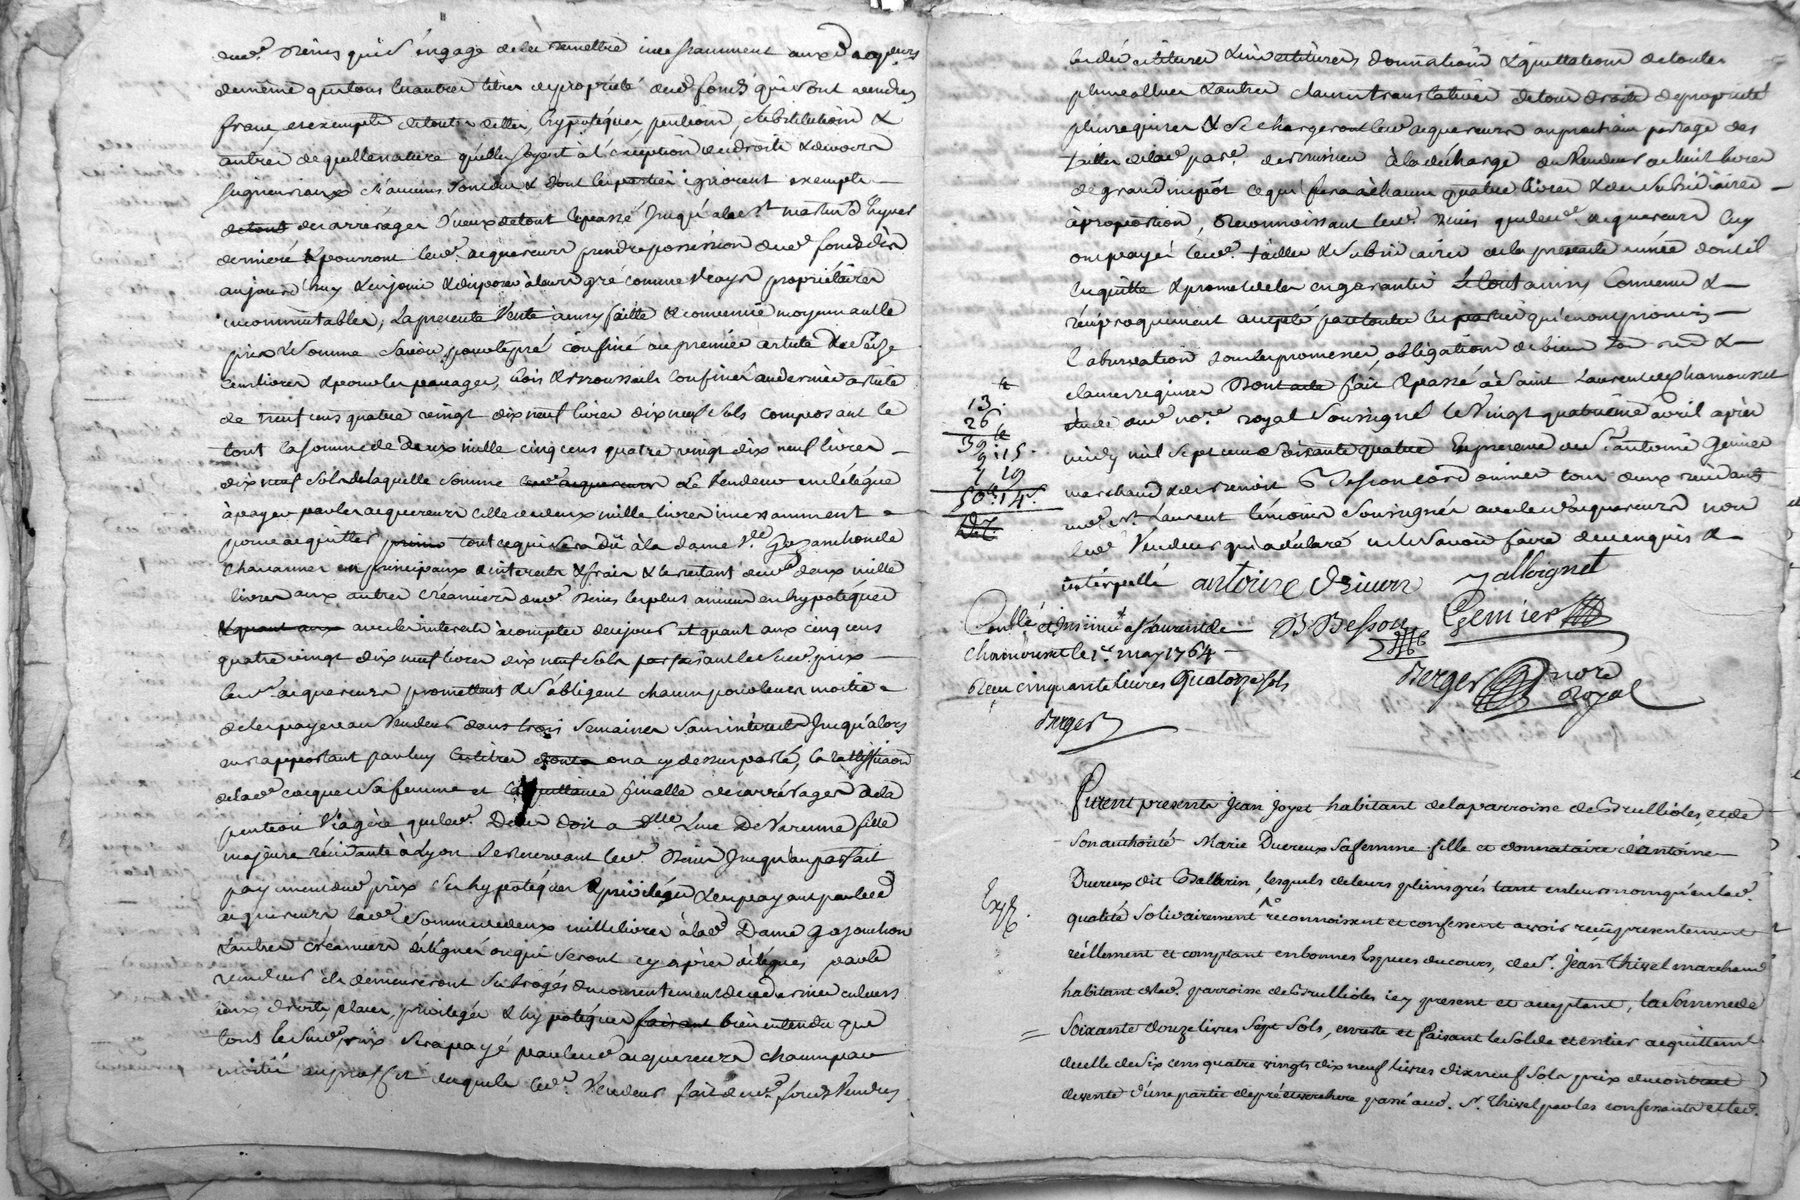 dud. Rivis qu'il s'engage de leur remettre incessamment auxd acqrs
de même que tous les autres titres de propriété desd fonds qui sont vendus
franc et exempts de toutes dettes, hypotéques pensions, substitutions &
autres de quelle nature qu'elles soyent à l'éxception des droits & devoirs
seigneuriaux d'anciens sont dus & dont les parties ignorent exempts
des arrérages d'iceux de tout le passé jusqu'à la st martin d'hyver
derniere & pourront lesd. acquereurs prendre possession desd fonds dès
aujourd'huy & en jouir & disposer à leur gré comme vrays propriétaires
incommutables, La presente Vente ainsy faitte & convenue moyennant le
prix & somme savoir pour le pré confiné au premier article de seize
cens livres & pour les passages, bois & broussails confinés au dernier article
de neuf cens quatre vingt dix neuf livres dix neuf sols composant le
tout la somme de deux mille cinq cens quatre vingt dix neuf livres
dix neuf sols de laquelle somme le Vendeur en délégue
à payer par les acquereurs celle de deux mille livres incessamment
pour acquitter tout ce qui sera dû à la dame Gazanchon de
Chavannes en principaux interests & frais & le restant desd deux mille
livres aux autres créanciers dud Rivis les plus anciens en hypotéques
avec les interests à compter de ce jour et quant aux cinq cens
quatre vingt dix neuf livres dix neuf sols faisant le susd. prix
lesd. acquereurs promettent & s'obligent chacun pour leur moitié
de les payer au Vendeur dans trois semaines sans interests jusqu'alors
en rapportant par luy les titres dont on a cy dessus parlé, la ratiffication
de lad sa femme et la quittance finalle des arrérages de la
pension Viagère que led. doit a dlle Luce De Varenne fille
majeure résidante à Lyon se reservant led. Rivis jusqu'au parfait
payement dud prix ses hypotéques & privileges & en payant par lesd
acquereurs lad somme de deux mille livres à lad Dame Gazanchon
& autres créanciers délégués ou qui seront cy après délégués par le
vendeur ils demeureront subrogés du consentement de ce dernier en leurs
lieux droits, places, privileges & hypotéques bien entendu que
tout le susd prix sera payé par lesd acquereurs chacun par
moitié au proffit duquel led. Vendeur fait desd. fonds Vendus
les dévetitures & invetitures donnations & quittations de toutes
plus values & autres clauses translatives de tous droits de proprieté
plus requises & se chargeront lesd acquereurs au prochain partage des
tailles de lad par. à la décharge du Vendeur de huit livres
de grand impôt ce qui fera à chacun quatre livres & des subsidiaires
à proportion, Reconnoissant led. Rivis que lesd. acquereurs luy
ont payé lesd. tailles & subsidiaires de la presente année dont il
les quitte & promet de les en garantir Le tout ainsy Convenu &
réciproquement accepté par toutes les parties qui en ont promis
l'observation sous les promesses, obligations de biens &
clauses requises Dont acte fait & passé à Saint Laurent de Chamousset
étude dud nore. royal soussigné le Vingt quatrieme avril après
midy mil sept cens Soixante quatre En presence de Sr antoine Genier
marchand & de Benoit Besson cordonnier tous deux residants
aud. St. Laurent témoins soussignés avec lesd acquereurs non
led. Vendeur qui a déclaré ne le savoir faire de ce enquis &
interpellé antoine
13 tt
26
39 tt
9:15.
2 19
50 tt 14 s.
Genier
B Besson
Conllé et Insinué à St Laurent de
Chamousset le 1er may 1764
Reçu cinquante livres Quatorze sols
Berger
Berger nore
Royal
Furent presents Jean Joyet habitant de la parroisse de Brullioles, et de
son authorité Marie Ducreux sa femme fille et donnataire d'antoine
Ducreux dit Balthazin, lesquels de leurs plains grés tant en leurs noms qu'en lad.
Exp.
qualité solidairement reconnoissent et confessent avoir reçû presentement
réellement et comptant en bonnes Especes du cours, de sr. Jean Thivel marchand
habitant de lad. parroisse de Brullioles icy present et acceptant, la somme de
Soixante douze livres Sept Sols, en reste et faisant le solde et entier acquittement
de celle de Six cens quatre vingts dix neuf livres dix neuf Sols prix du contract
de vente d'une partie de pré et verchere passé aud. Sr. Thivel par les confessants et led.